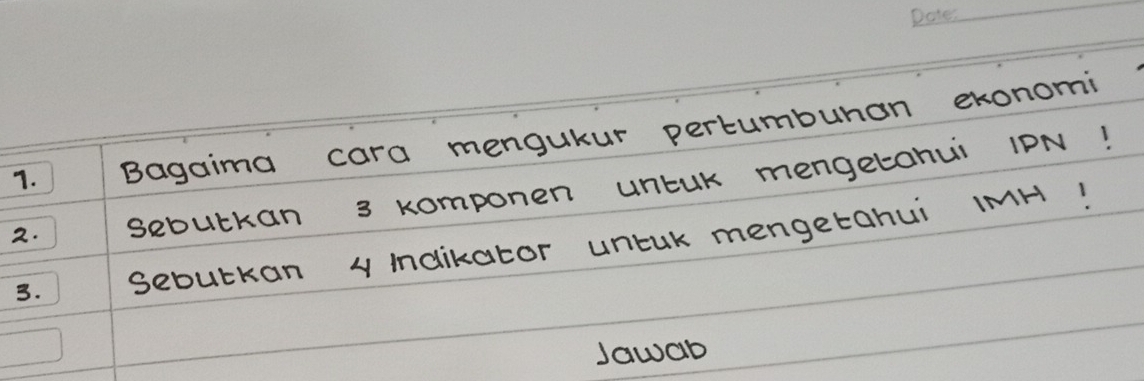 Date:
1. Bagaima cara mengukur pertumbuhan ekonomi
2. Sebutkan 3 komponen untuk mengetahui IPN !
3. Sebutkan 4 Indikator untuk mengetahui IMH !
Jawab